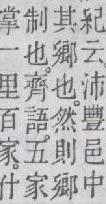 紀云、沛豐邑中
其鄉也。然則鄉
制也。齊語。五家
掌一里百家。什